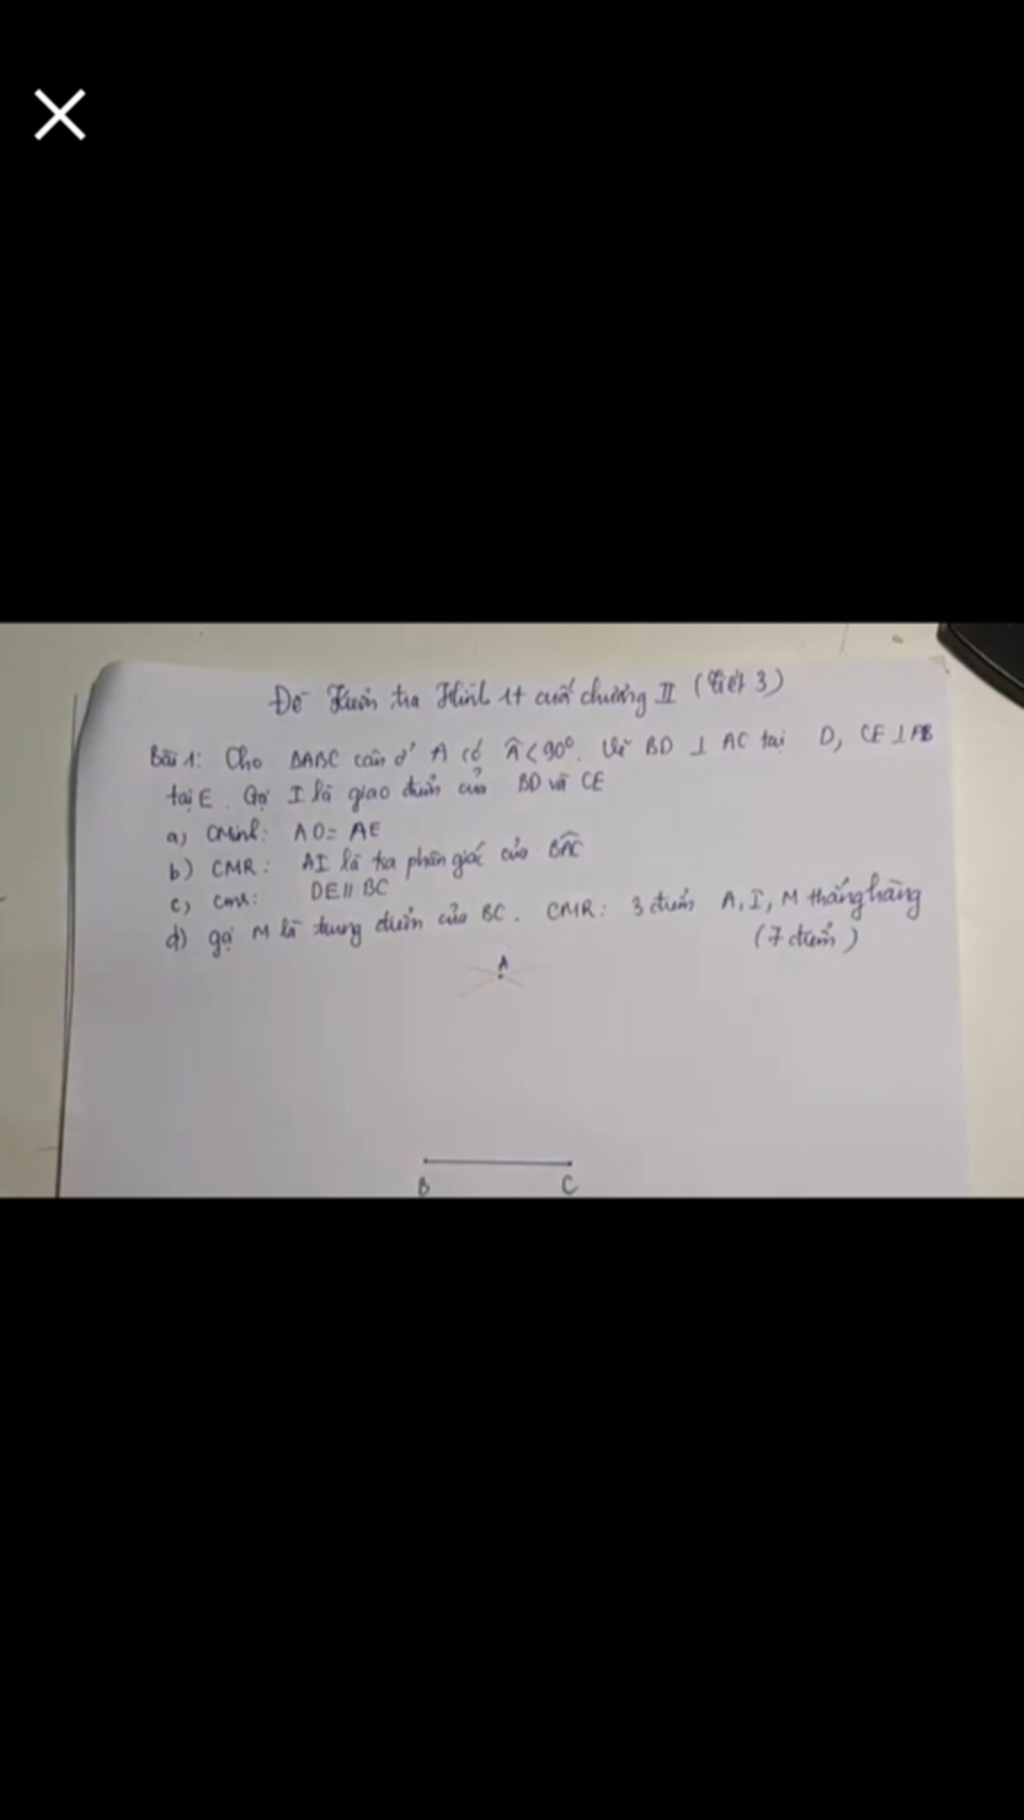 Đề Kiểm tra Hình 1t cuối chương II (tiết 3)
Bài 1: Cho ΔABC cân ở A có Â < 90°. Vẽ BD ⊥ AC tại D, CE ⊥ AB
tại E. Gọi I là giao điểm của BD và CE
a) CMinh: AD = AE
b) CMR: AI là tia phân giác của BAC
c) cmr: DE // BC
d) gọi M là trung điểm của BC. CMR: 3 điểm A, I, M thẳng hàng
(7 điểm)
A
B C